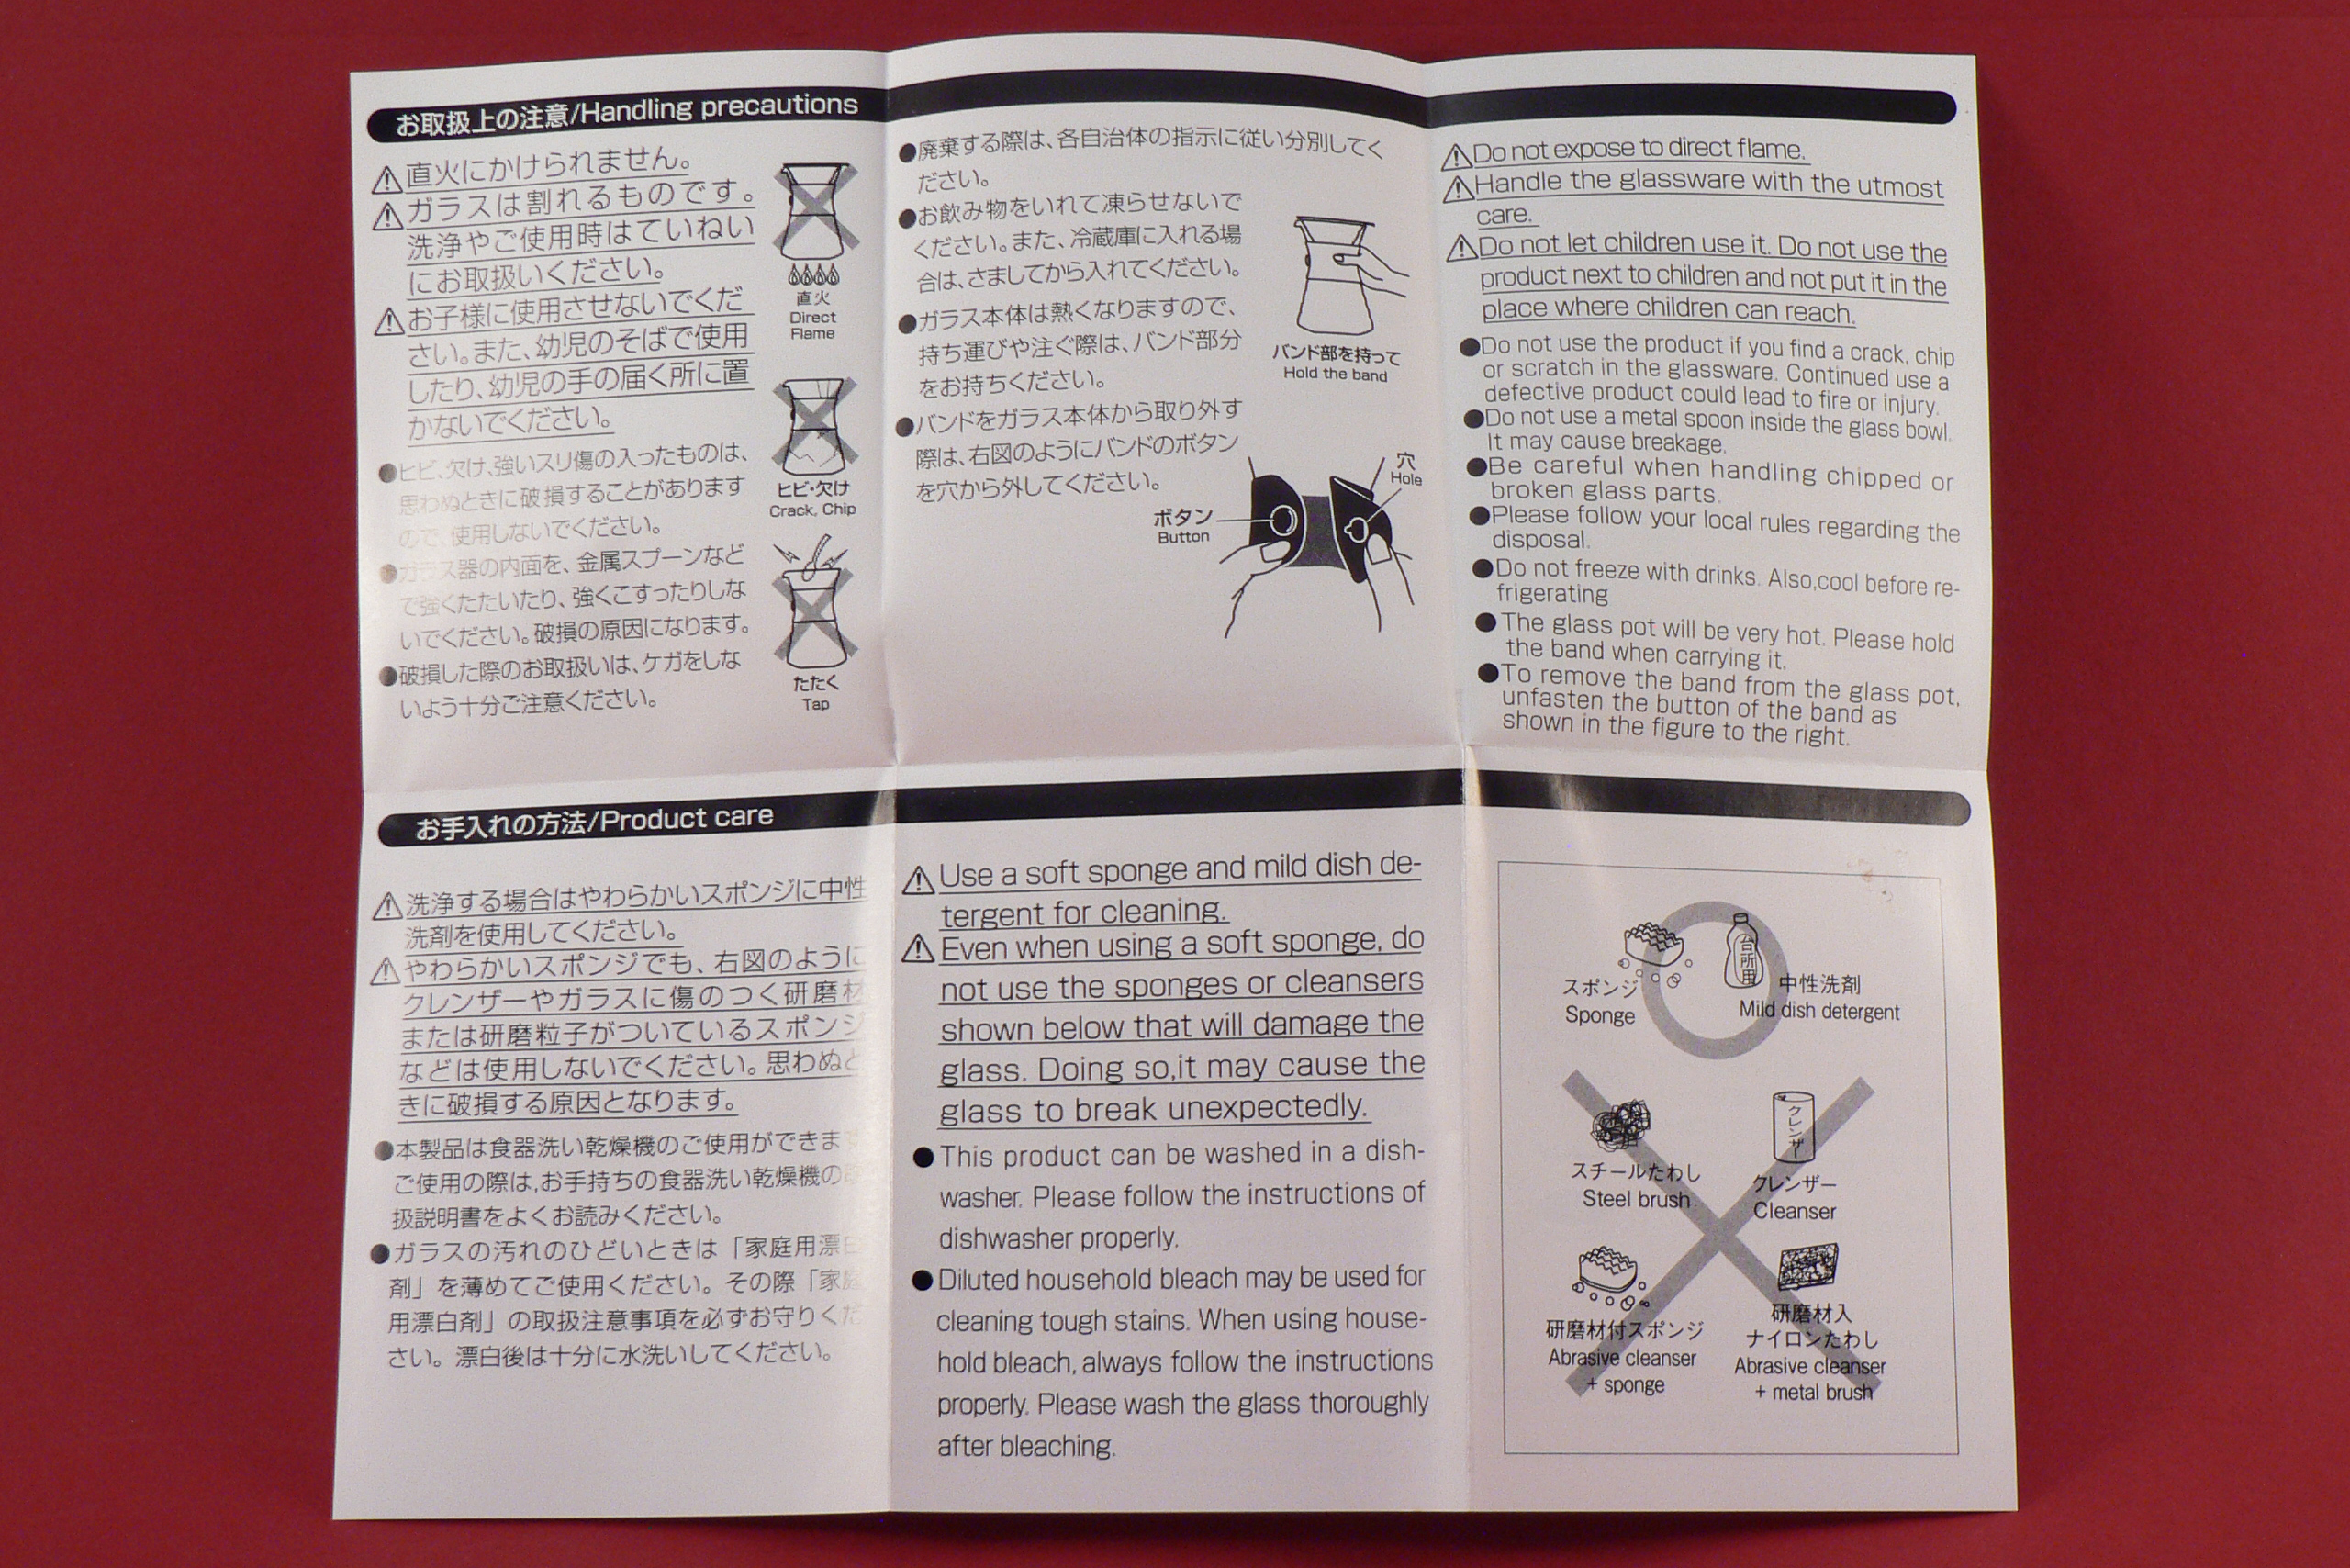 お取扱上の注意/Handling precautions
直火にかけられません。
ガラスは割れるものです。
洗浄やご使用時はていねい
にお取扱いください。
お子様に使用させないでくだ
さい。また、幼児のそばで使用
したり、幼児の手の届く所に置
かないでください。
●ヒビ、欠け、強いスリ傷の入ったものは、
思わぬときに破損することがあります
ので、使用しないでください。
●ガラス器の内面を、金属スプーンなど
で強くたたいたり、強くこすったりしな
いでください。破損の原因になります。
●破損した際のお取扱いは、ケガをしな
いよう十分ご注意ください。
直火
Direct
Flame
ヒビ・欠け
Crack, Chip
たたく
Tap
●廃棄する際は、各自治体の指示に従い分別してく
ださい。
●お飲み物をいれて凍らせないで
ください。また、冷蔵庫に入れる場
合は、さましてから入れてください。
●ガラス本体は熱くなりますので、
持ち運びや注ぐ際は、バンド部分
をお持ちください。
●バンドをガラス本体から取り外す
際は、右図のようにバンドのボタン
を穴から外してください。
バンド部を持って
Hold the band
穴
Hole
ボタン
Button
Do not expose to direct flame.
Handle the glassware with the utmost
care.
Do not let children use it. Do not use the
product next to children and not put it in the
place where children can reach.
●Do not use the product if you find a crack, chip
or scratch in the glassware. Continued use a
defective product could lead to fire or injury.
●Do not use a metal spoon inside the glass bowl.
It may cause breakage.
●Be careful when handling chipped or
broken glass parts.
●Please follow your local rules regarding the
disposal.
●Do not freeze with drinks. Also,cool before re-
frigerating
●The glass pot will be very hot. Please hold
the band when carrying it.
●To remove the band from the glass pot,
unfasten the button of the band as
shown in the figure to the right.
お手入れの方法/Product care
洗浄する場合はやわらかいスポンジに中性
洗剤を使用してください。
やわらかいスポンジでも、右図のように
クレンザーやガラスに傷のつく研磨材
または研磨粒子がついているスポンジ
などは使用しないでください。思わぬと
きに破損する原因となります。
●本製品は食器洗い乾燥機のご使用ができます
ご使用の際は、お手持ちの食器洗い乾燥機の
扱説明書をよくお読みください。
●ガラスの汚れのひどいときは「家庭用漂白
剤」を薄めてご使用ください。その際「家庭
用漂白剤」の取扱注意事項を必ずお守りくだ
さい。漂白後は十分に水洗いしてください。
Use a soft sponge and mild dish de-
tergent for cleaning.
Even when using a soft sponge, do
not use the sponges or cleansers
shown below that will damage the
glass. Doing so,it may cause the
glass to break unexpectedly.
●This product can be washed in a dish-
washer. Please follow the instructions of
dishwasher properly.
●Diluted household bleach may be used for
cleaning tough stains. When using house-
hold bleach, always follow the instructions
properly. Please wash the glass thoroughly
after bleaching.
台所用
スポンジ
Sponge
中性洗剤
Mild dish detergent
クレンザー
スチールたわし
Steel brush
クレンザー
Cleanser
研磨材付スポンジ
Abrasive cleanser
+ sponge
研磨材入
ナイロンたわし
Abrasive cleanser
+ metal brush